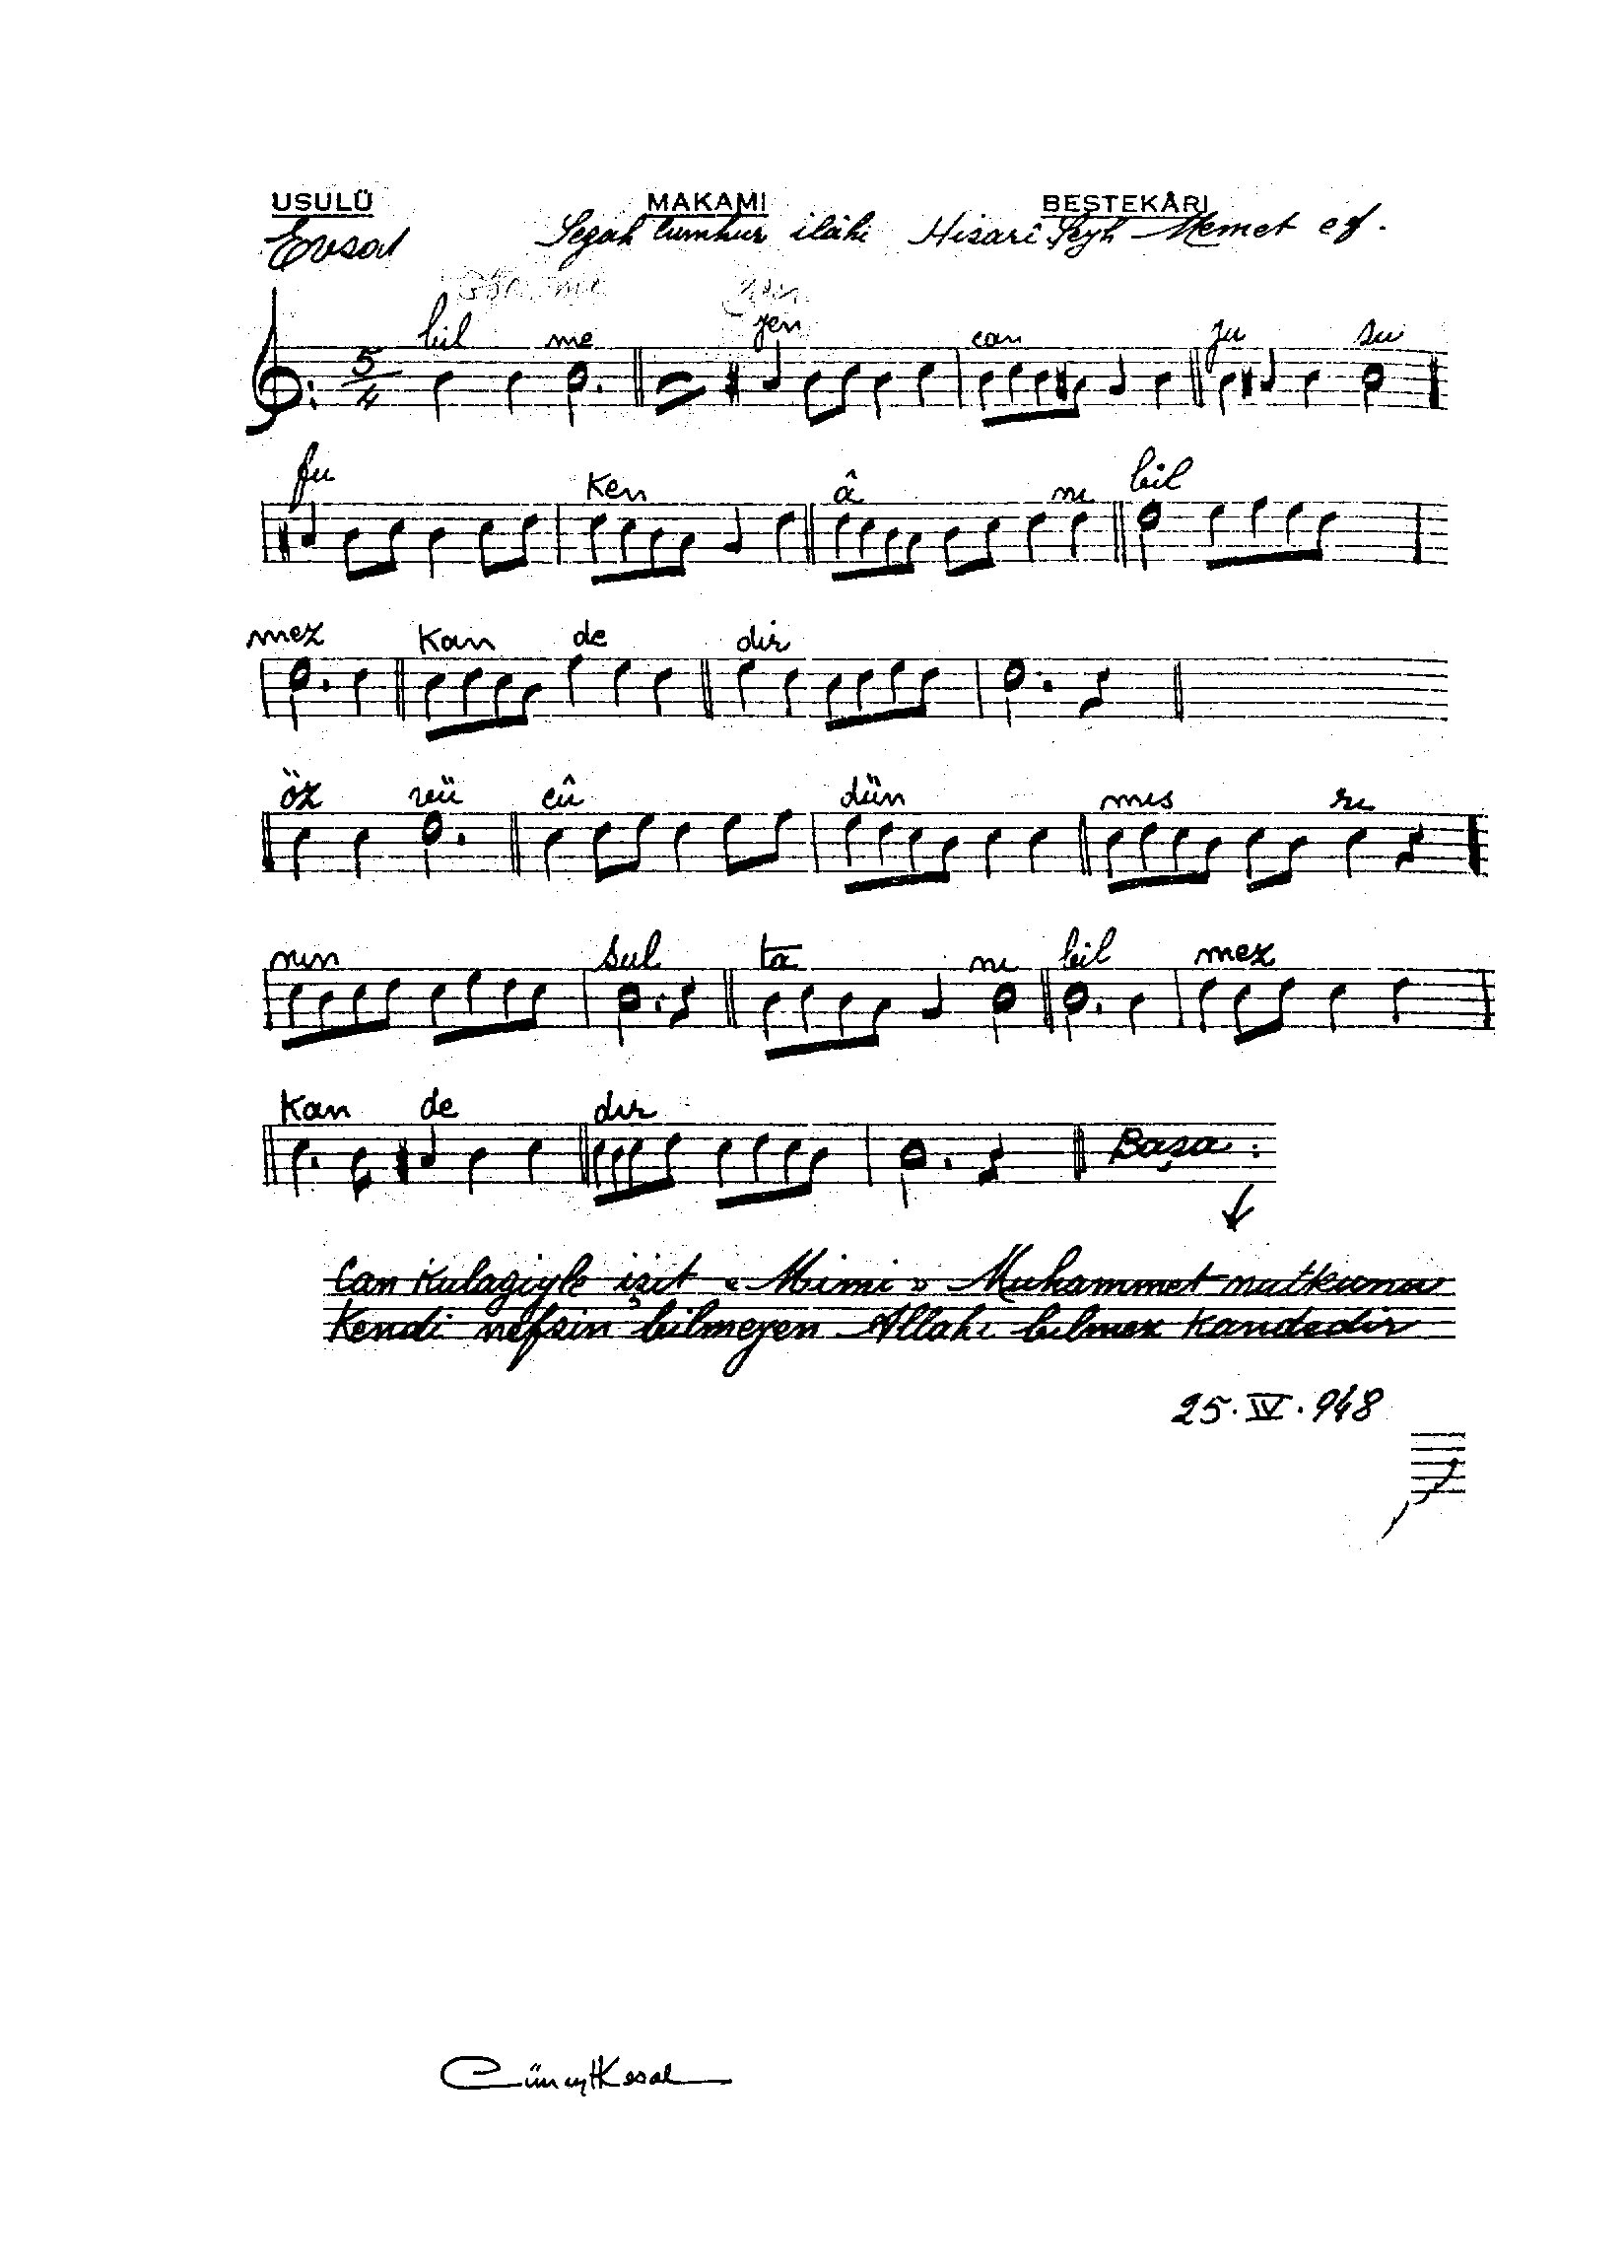 USULÜ MAKAMI BESTEKÂRI
Evsat Segah Cumhur ilâhi Hisarî Şeyh Memet ef.
bil me yen can yu su
5/4
fu ken â nı bil
mez kan de dir
öz vü cû dün mıs rı
nın sul ta nı bil mez
kan de dır
Başa :
Can kulagiyle işit « Mimi » Muhammet nutkunu
Kendi nefsin bilmeyen Allahı bilmez kandedir
25.IV.948
Cüneyt Kosal